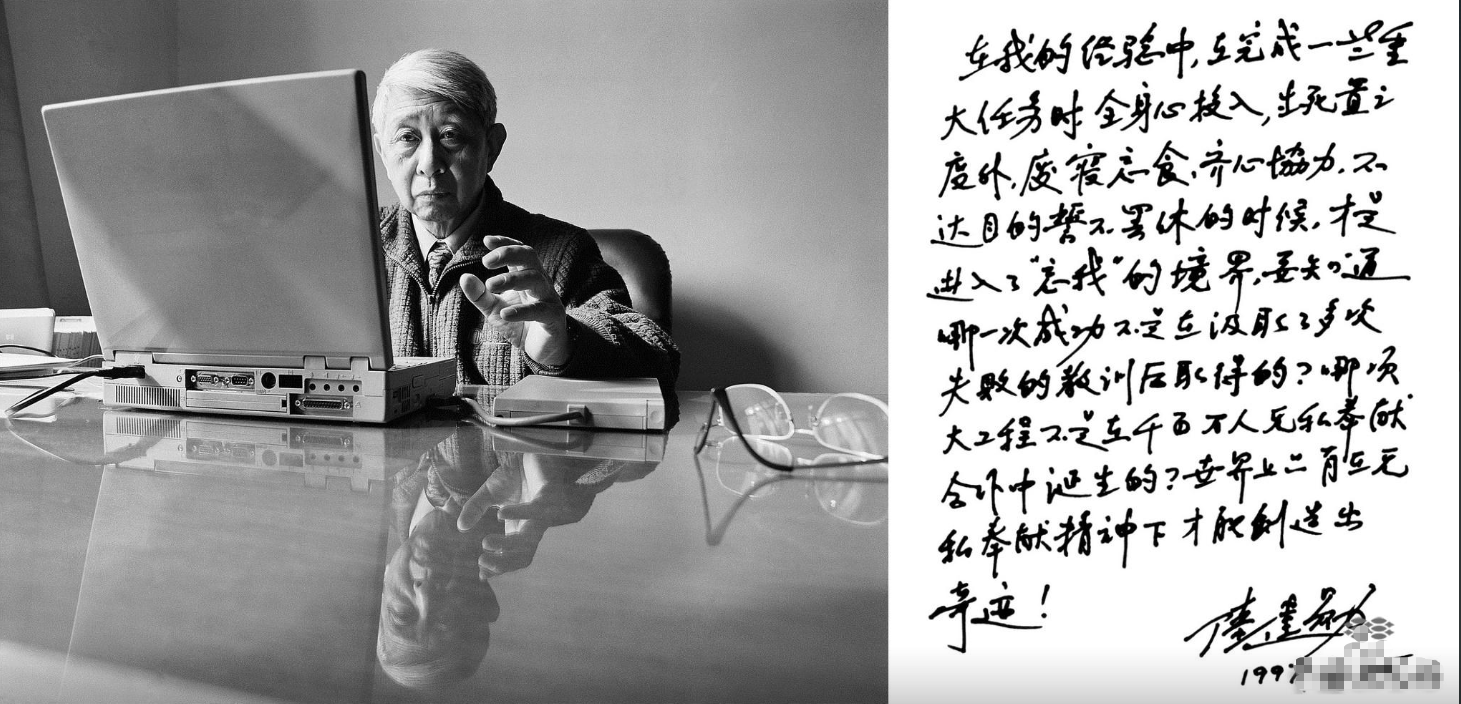 在我的经验中,在完成一些重
大任务时全身心投入,生死置之
度外,废寝忘食,齐心協力,不
达目的誓不罢休的时候,才是
进入了"忘我"的境界,要知道
哪一次成功不是在汲取了多次
失败的教训后取得的?哪项
大工程不是在千百万人无私奉献
合作中诞生的?世界上只有在无
私奉献精神下才能創造出
奇迹!
陸建勋
199